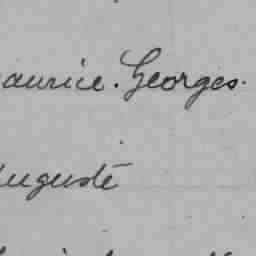 aurice. Georges.
uguste